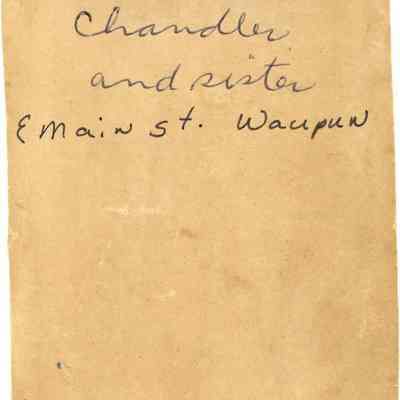 Chandler
and sister
E Main St. Waupun